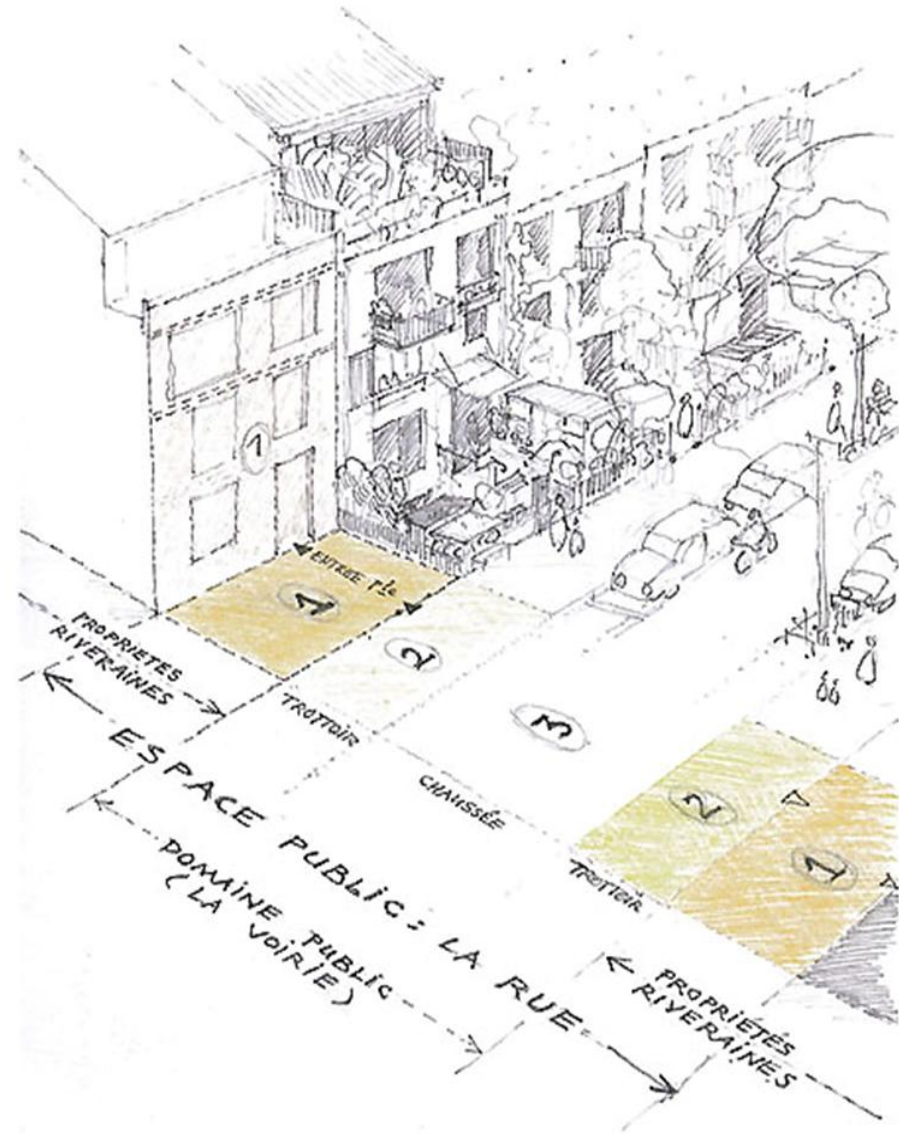 1
ENTRÉE
1
2
PROPRIETES
RIVERAINES
TROTTOIR
3
CHAUSSÉE
2
1
TROTTOIR
ESPACE PUBLIC : LA RUE
DOMAINE PUBLIC
(LA VOIRIE)
PROPRIETÉS
RIVERAINES